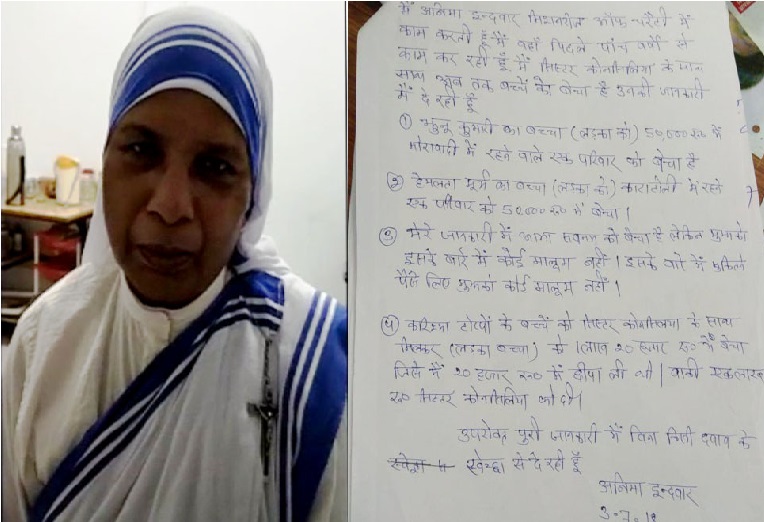 मैं अनिमा इन्दवार मिशनरीज ऑफ चैरिटी में
काम करती हूँ मैं यहाँ पिछले पांच वर्षों से
काम कर रही हूँ मैं सिस्टर कोनसिलिया के साथ
अब तक बच्चों को बेचा है उनकी जानकारी
मैं दे रही हूँ
① कुमारी का बच्चा (लड़का को) 50,000 रू० में
मोराबादी में रहने वाले एक परिवार को बेचा है
② का बच्चा (लड़का को) में रहने
एक परिवार को 50,000 रू० में बेचा।
③ मेरे जानकारी में को बेचा है लेकिन मुझको
इसके बारे में कोई मालूम नहीं। इसके बारे में कितने
पैसे लिए मुझको कोई मालूम नहीं।
④ टोप्पो के बच्चे को सिस्टर कोनसिलिया के साथ
मिलकर (लड़का बच्चा) को 1 लाख 20 हजार रू० में बेचा
जिसमें 20 हजार रू० मैं ली थी। बाकी एक लाख
रू० सिस्टर कोनसिलिया को दी।
उपरोक्त पूरी जानकारी मैं बिना किसी दबाव के
स्वेच्छा से दे रही हूँ
अनिमा इन्दवार
3.7.18